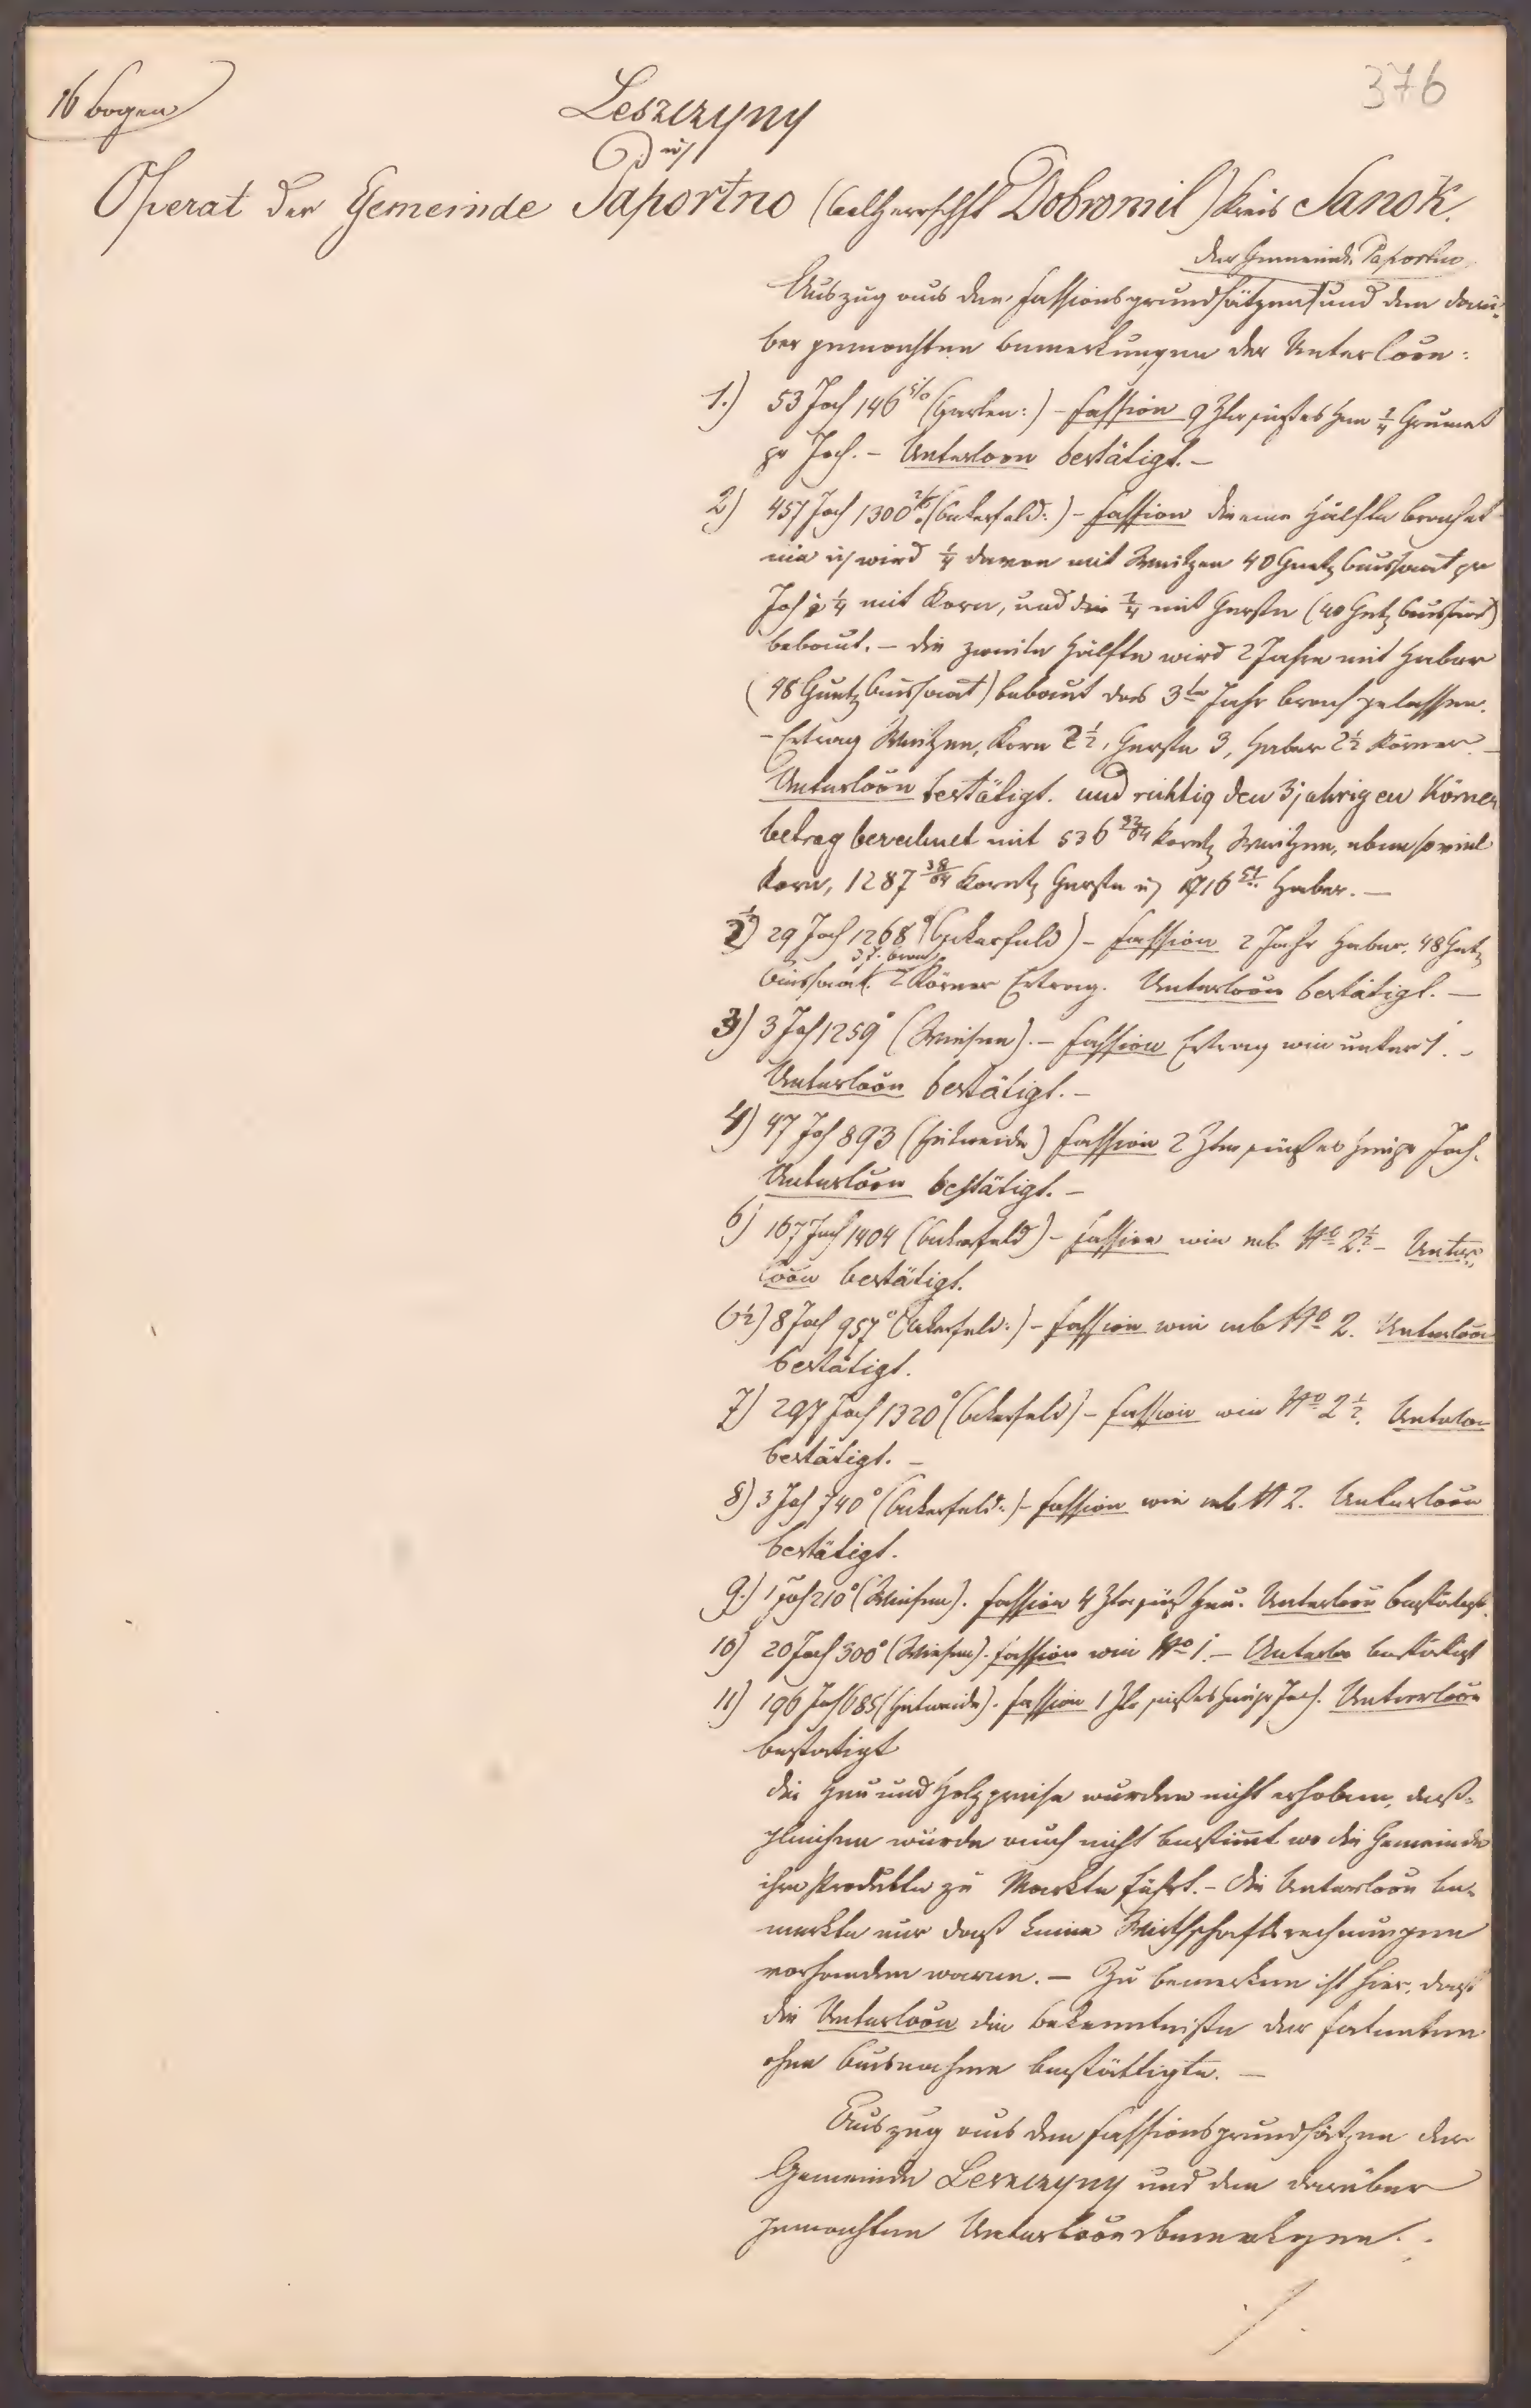 376
16 bogen
Leszczyny
Operat der Gemeinde Paportno (Cal Herrschft Dobromil) Kreis Sanok.
der Gemeinde Paportno
Auszug aus den Fassionsgrundsätzen und den darü-
ber gemachten Bemerkungen der Unterloõn:
1.) 53 Joch 146 (Garten:) - Fassion 9 Ztr süßes Heu 1/4 Grumet
pr Joch. - Unterloon bestätigt. -
2) 457 Joch 1300 (Ackerfeld:) - Fassion die eine Hälfte brachet
nie und wird 1/4 davon mit Weitzen 40 Garetz Aussaat pr
Joch 1/4 mit Korn, und die 2/4 mit Gerste (40 Gtz Aussaat)
bebaut. - die zweite Hälfte wird 2 Jahre mit Haber
(48 Garetz Aussaat) bebaut das 3te Jahr brach gelassen.
- Ertrag Weitzen, Korn 2 1/2, Gerste 3, Haber 2 1/2 Körner. -
Unterloõn bestätigt. und richtig den 3jahrigen Körner
betrag berechnet mit 536 32/64 Koretz Weitzen, eben so viel
Korn, 1287 38/64 Koretz Gerste und 1716 51 Haber. -
2 1/2) 29 Joch 1268° (Ackerfeld) - Fassion 2 Jahr Haber, 48 Gtz
3 J. brach
Aussaat. 2 Körner Ertrag. Unterloõn bestätigt. -
3) 3 Joch 1259° (Wiesen). - Fassion Ertrag wie unter 1. -
Unterloõn bestätigt. -
4) 47 Joch 893 (Hutweide) Fassion 2 Ztr süßes Heu pr Joch.
Unterloõn bestätigt. -
6) 167 Joch 1404 (Ackerfeld) - Fassion wie sub No 2 1/2 - Unter-
loõn bestätigt.
6 1/2) 8 Joch 957° (Ackerfeld:) - Fassion wie sub No 2. Unterloõn
bestätigt.
7) 297 Joch 1320° (Ackerfeld) - Fassion wie No 2 1/2. Unterloõn
bestätigt. -
8) 3 Joch 740° (Ackerfeld:) - Fassion wie sub N 2. Unterloõn
bestätigt.
9.) 1 Joch 210° (Wiesen). Fassion 4 Ztr süß Heu. Unterloõn bestätigt.
10) 20 Joch 300° (Wiesen). Fassion wie No 1. - Unterloo bestätigt
11) 196 Joch 685 (Hutweide). Fassion 1 Ztr süßes Heu pr Joch. Unterloõn
bestatigt
die Heu und Holzpreise wurden nicht erhoben, deß-
gleichen wurde auch nicht bestimt wo die Gemeinde
ihre Produkte zu Markte führt. - die Unterloõn be-
merkte nur daß keine Wirthschaftsrechnungen
vorhanden waren. - Zu bemerken ist hier, daß
die Unterloõn die Bekenntniße der Fatenten
ohne Ausnahme bestättigte. -
Auszug aus den Fassionsgrundsätzen der
Gemeinde Leszczyny und den darüber
gemachten Unterloõnsbemerkgen.